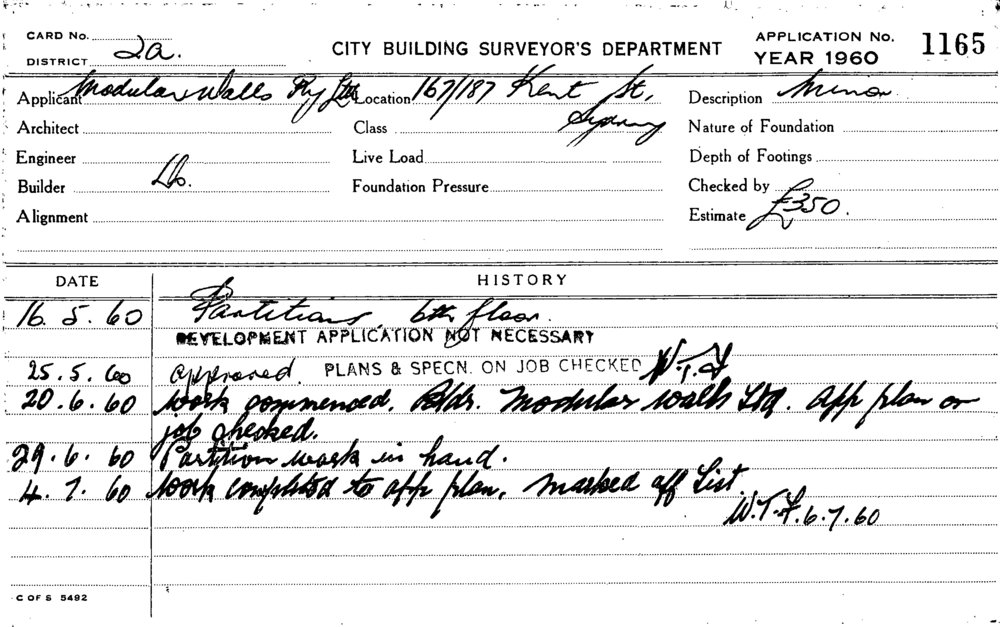 CARD No.
CITY BUILDING SURVEYOR'S DEPARTMENT
APPLICATION No. 1165
DISTRICT 2a.
YEAR 1960
Applicant Modular Walls Pty Ltd Location 167/187 Kent St, Description Minor
Sydney
Architect Class Nature of Foundation
Engineer Live Load Depth of Footings
Builder Do. Foundation Pressure Checked by
Alignment Estimate £350.
DATE HISTORY
16.5.60 Partitions 6th floor.
DEVELOPMENT APPLICATION NOT NECESSARY
25.5.60 approved. PLANS & SPECN. ON JOB CHECKED W.T.F
20.6.60 Work commenced. Bldr. Modular Walls Ltd. app plan on
job checked.
29.6.60 Partition work in hand.
4.7.60 Work completed to app plan, marked off List
W.T.F. 6.7.60
C OF S 5492